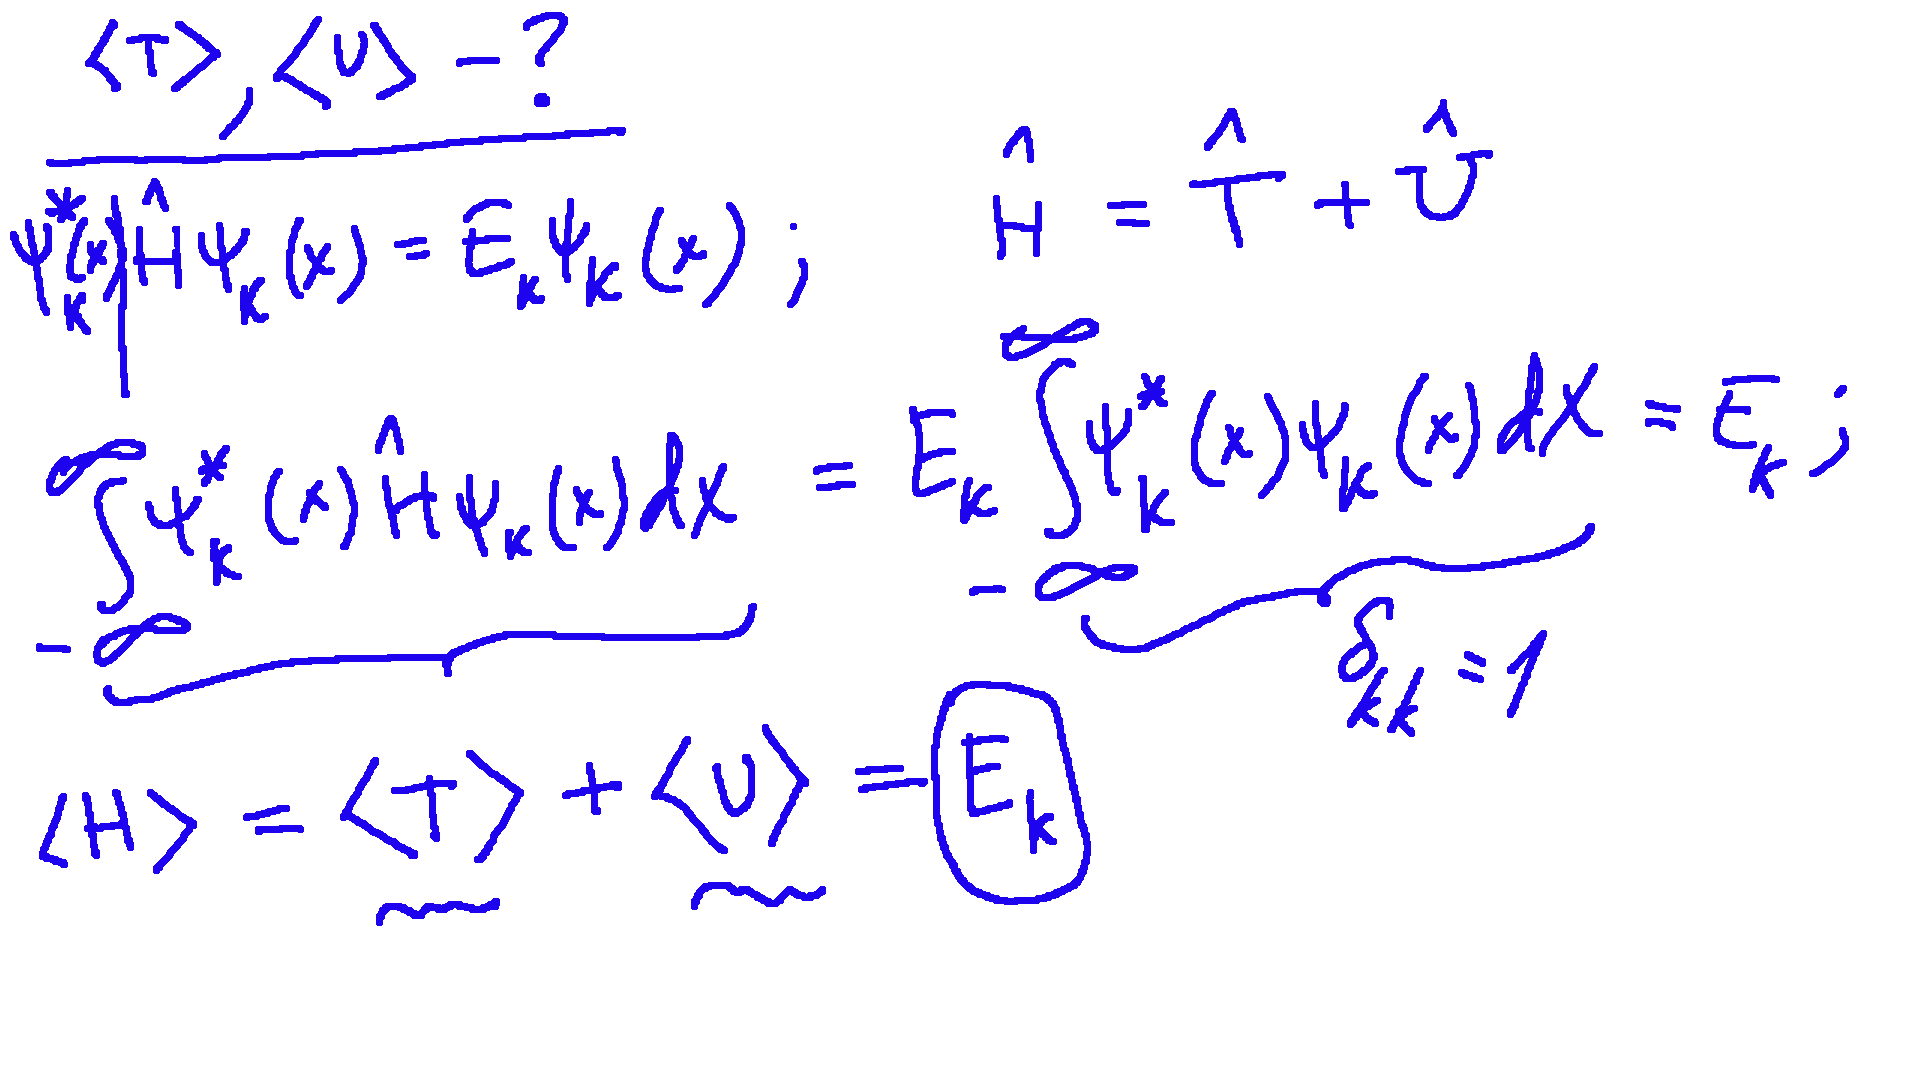 ⟨T⟩, ⟨U⟩ - ?
ψ*ₖ(x) | Ĥψₖ(x) = Eₖψₖ(x) ; Ĥ = T̂ + Û
∫_{-∞}^{∞} ψ*ₖ(x) Ĥψₖ(x) dx = Eₖ ∫_{-∞}^{∞} ψ*ₖ(x) ψₖ(x) dx = Eₖ ;
δₖₖ = 1
⟨H⟩ = ⟨T⟩ + ⟨U⟩ = Eₖ